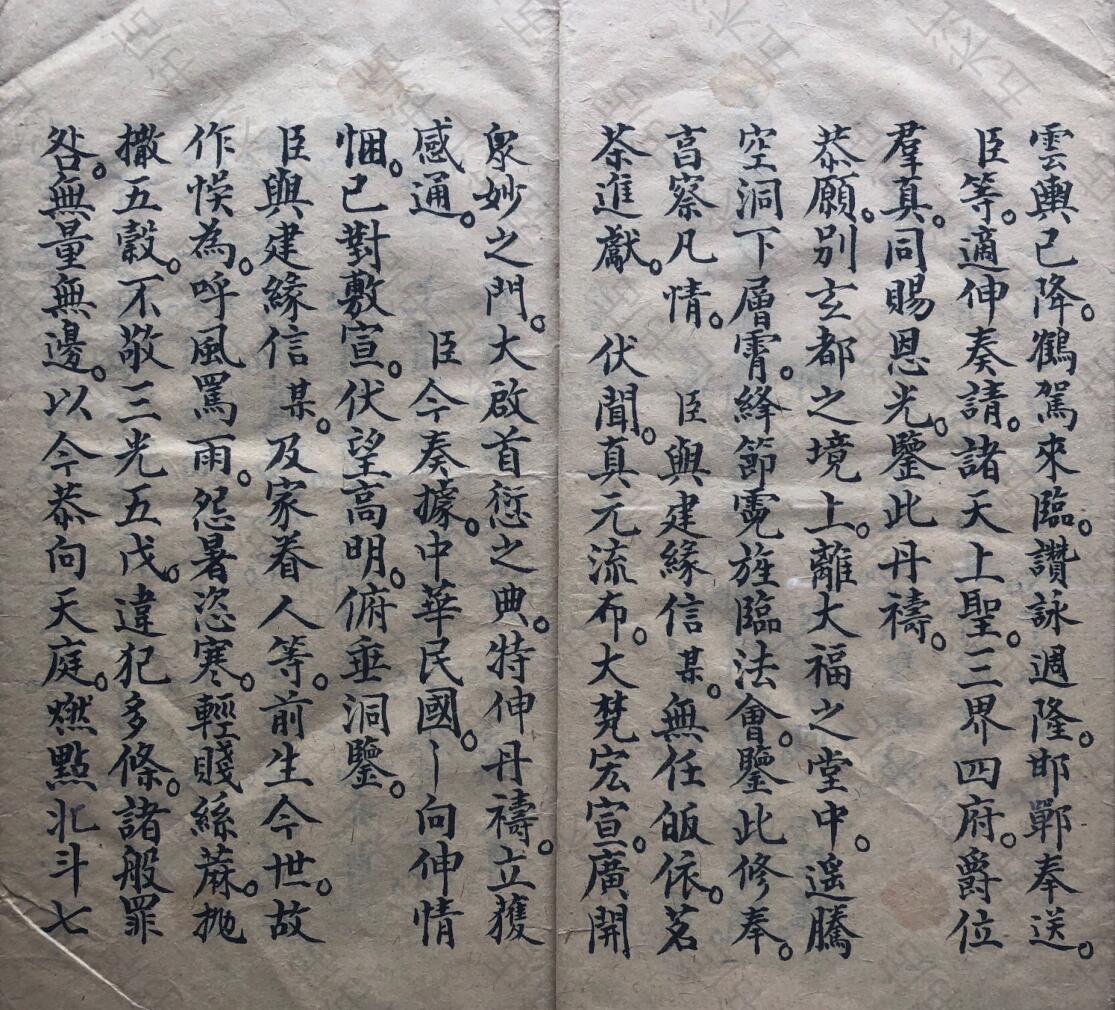 雲輿已降。鶴駕來臨。讚詠週隆。邯鄲奉送。
臣等。適伸奏請。諸天上聖。三界四府。爵位
羣真。同賜恩光。鑒此丹禱。
恭願。別玄都之境上。離大福之堂中。遥騰
空洞下層霄。絳節霓旌臨法會。鑒此修奉。
髙察凡情。 臣與建緣信某。無任皈依。茗
茶進獻。 伏聞。真元流布。大梵宏宣。廣開
衆妙之門。大啟首愆之典。特伸丹禱。立獲
感通。 臣今奏據。中華民國。〡向伸情
悃。已對敷宣。伏望高明。俯垂洞鑒。
臣與建緣信某。及家眷人等。前生今世。故
作悞為。呼風罵雨。怨暑恣寒。輕賤絲蔴。抛
撒五穀。不敬三光五戊。違犯多條。諸般罪
咎。無量無邊。以今恭向天庭。燃點北斗七